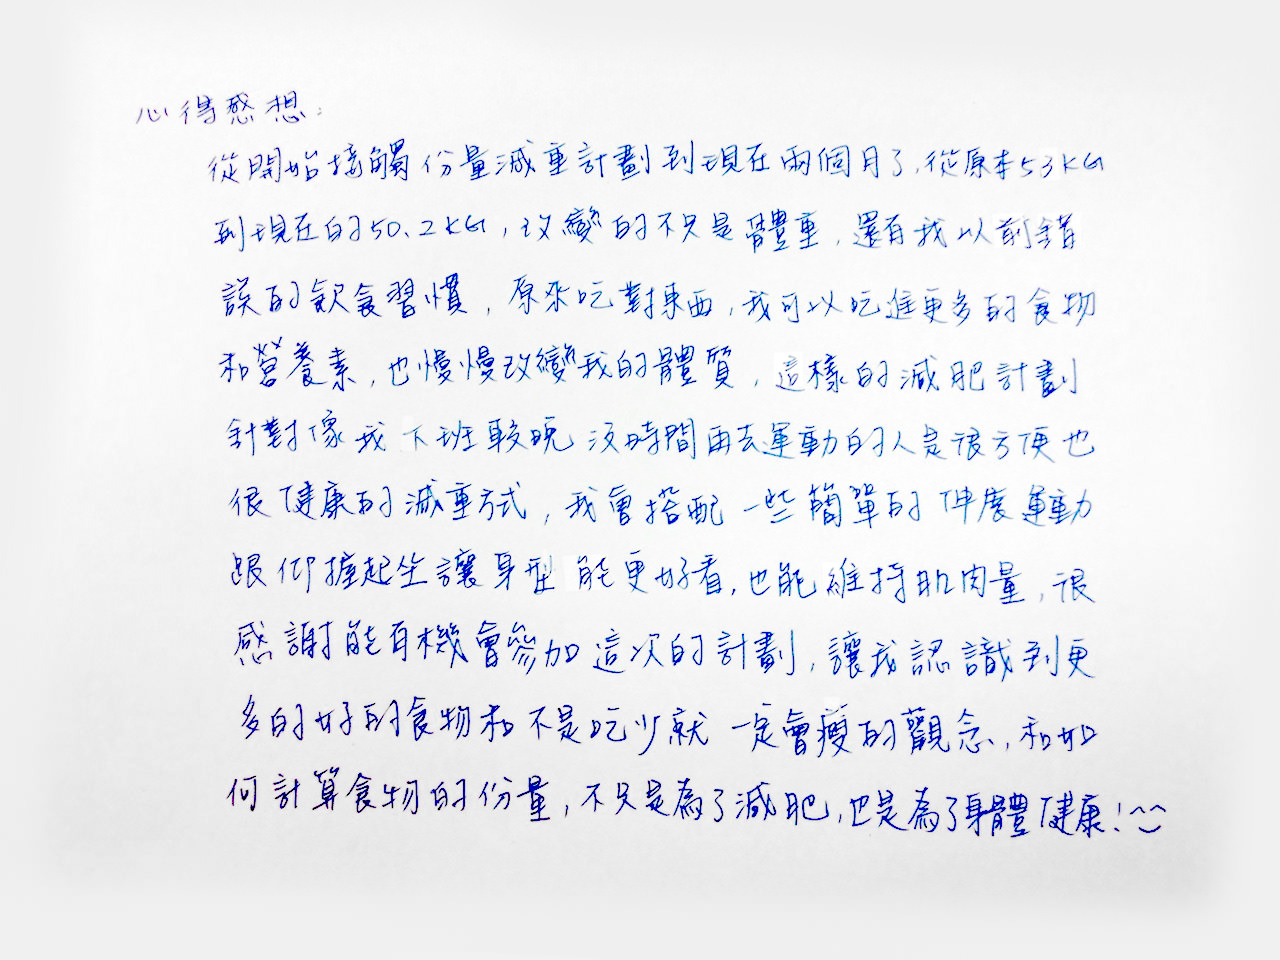 心得感想:
從開始接觸份量減重計劃到現在兩個月了,從原本53KG
到現在的50.2KG,改變的不只是體重,還有我以前錯
誤的飲食習慣,原來吃對東西,我可以吃進更多的食物
和營養素,也慢慢改變我的體質,這樣的減肥計劃
針對像我下班較晚沒時間再去運動的人是很方便也
很健康的減重方式,我會搭配一些簡單的伸展運動
跟仰握起坐讓身型能更好看,也能維持肌肉量,很
感謝能有機會參加這次的計劃,讓我認識到更
多的好的食物和不是吃少就一定會瘦的觀念,和如
何計算食物的份量,不只是為了減肥,也是為了身體健康!^^